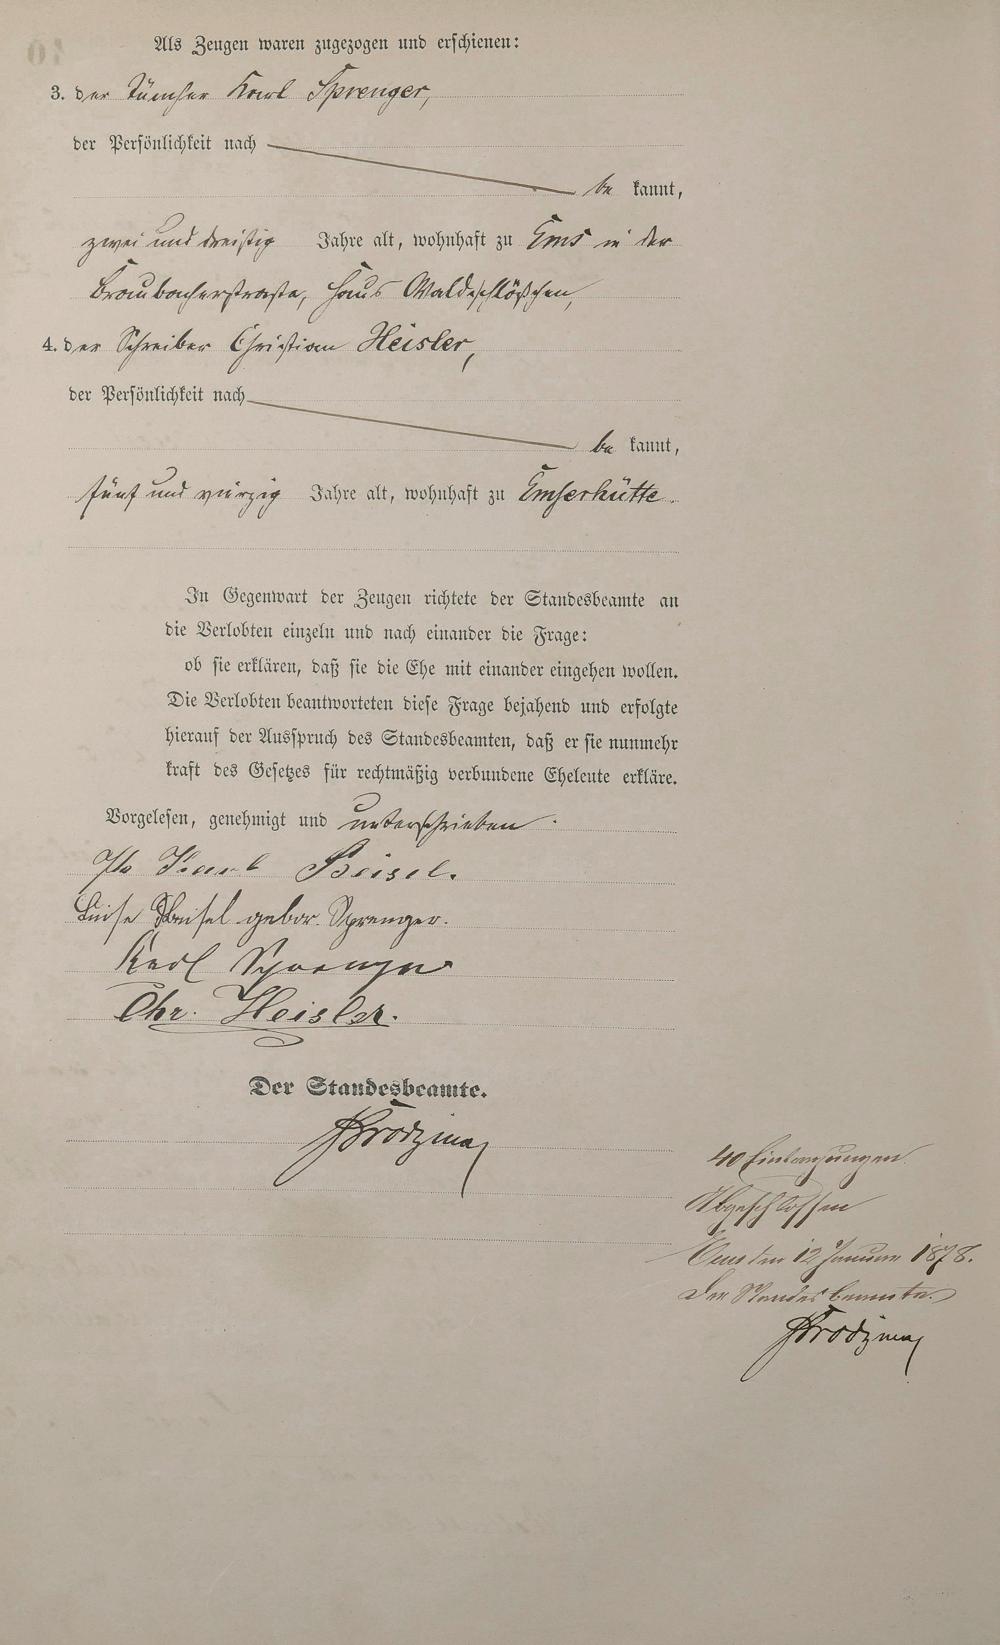 Als Zeugen waren zugezogen und erschienen:
3. der Tüncher Karl Sprenger,
der Persönlichkeit nach
be kannt,
zwei und dreißig Jahre alt, wohnhaft zu Ems in der
Braubacherstraße, Haus Waldschlößchen,
4. der Schreiber Christian Heisler,
der Persönlichkeit nach
be kannt,
fünf und vierzig Jahre alt, wohnhaft zu Emserhütte.
In Gegenwart der Zeugen richtete der Standesbeamte an
die Verlobten einzeln und nach einander die Frage:
ob sie erklären, daß sie die Ehe mit einander eingehen wollen.
Die Verlobten beantworteten diese Frage bejahend und erfolgte
hierauf der Ausspruch des Standesbeamten, daß er sie nunmehr
kraft des Gesetzes für rechtmäßig verbundene Eheleute erkläre.
Vorgelesen, genehmigt und unterschrieben.
Karl Beisel.
Luise Beisel gebor. Sprenger.
Karl Sprenger
Chr. Heisler.
Der Standesbeamte.
40 Eintragungen.
Abgeschlossen
Ems den 12 Januar 1878.
Der Standesbeamte.